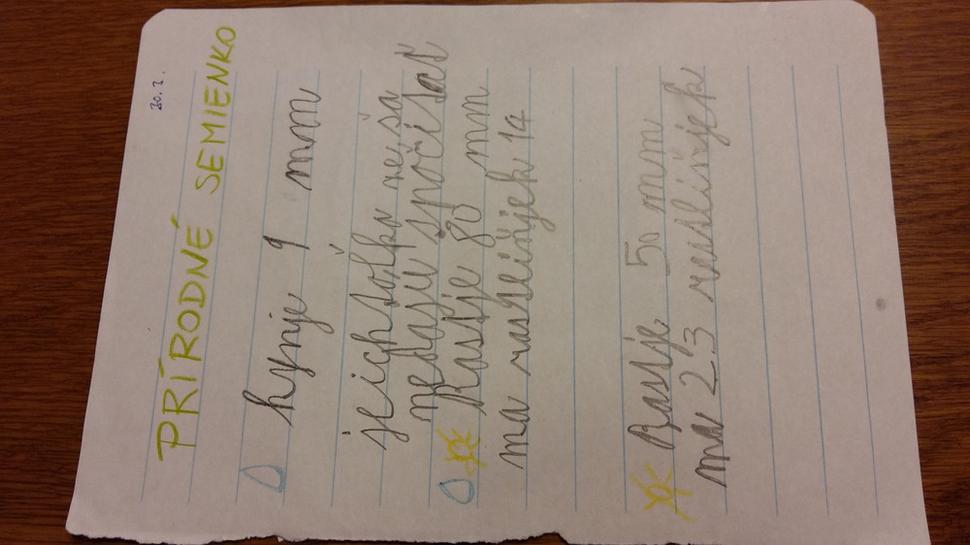 20.2.
PRÍRODNÉ SEMIENKO
hynje 9 mm
jeich tolko že sa
nedaju spočitať
Rastje 80 mm
ma rastliňjek 14
Rastje 50 mm
ma 23 rastliňjek